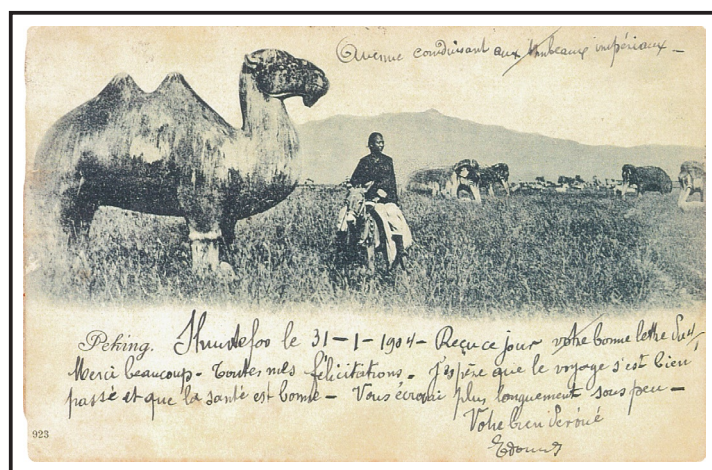 Avenue conduisant aux tombeaux impériaux -
Peking. le 31-1-1904 - Reçu ce jour votre bonne lettre du
Merci beaucoup - toutes mes félicitations. J'espère que le voyage s'est bien
passé et que la santé est bonne - Vous écrirai plus longuement sous peu -
Votre bien dévoué
923